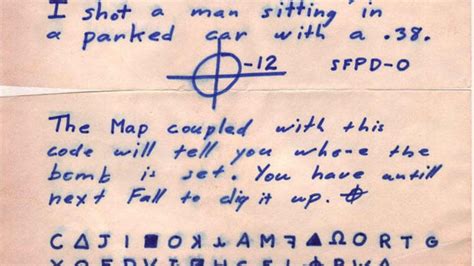 I shot a man sitting in
a parked car with a .38.
-12 SFPD-0
The Map coupled with this
code will tell you where the
bomb is set. You have antill
next Fall to dig it up. ⌖
C Δ J I ■ O ʞ ⅄ A M ꟻ ▲ Ω O R T G